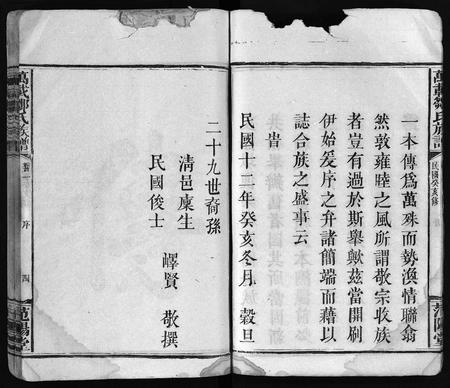 萬載鄒氏族譜
民國癸亥修
范陽堂
一本傳爲萬殊而勢渙情聯翕
然敦雍睦之風所謂敬宗收族
者豈有過於斯舉歟茲當開剞
伊始爰序之弁諸簡端而藉以
誌合族之盛事云
旹
民國十二年癸亥冬月 穀旦
二十九世裔孫
清邑廩生
民國俊士
嶧賢 敬撰
萬載鄒氏族譜
序
四
范陽堂